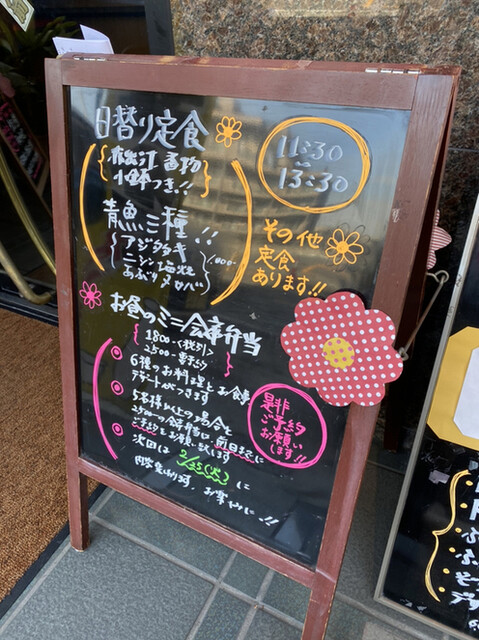 日替り定食
小鉢つき!!
11:30
~
13:30
青魚三種!!
アジタタキ
ニシン塩焼
あぶりメロバ
その他
定食
あります!!
お昼のミニ会席弁当
1800-<税引>
2500-要予約
6種のお料理とお食事
デザートがつきます
5名様以上の場合と
2500-の会席は前日までに
ご予約をお願い致します
次回は 2/25(火)に
内容変ります。お楽しみに!!
是非
ご予約
お願い
します!!